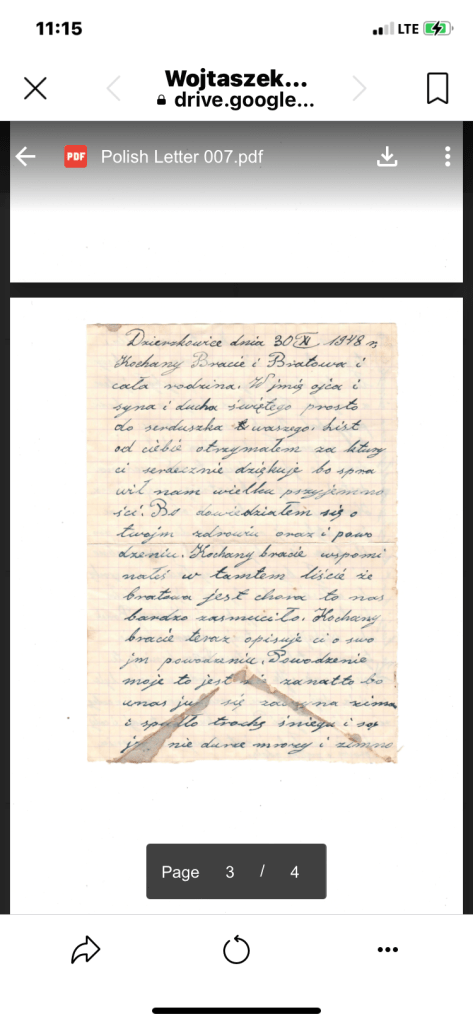 11:15
LTE
Wojtaszek...
drive.google...
PDF Polish Letter 007.pdf
Dzierskowice dnia 30 XI 1948 r.
Kochany Bracie i Bratowa i
cała rodzina. W jmię ojca i
syna i ducha świętego prosto
do serduszka waszego. List
od ciebie otrzymałem za ktury
ci serdecznie dziękuje bo spra
wił nam wielku pszyjemno
ści. Bo dowiedziałem się o
twojm zdrowiu oraz i powo
dzeniu. Kochany bracie wspomi
nałiś w tamtem liście że
bratowa jest chora to nas
bardzo zasmuciło. Kochany
bracie teraz opisuje ci o swo
jm powodzeniu. Powodzenie
moje to jest zanatto bo
unas już się zaczyna zima
i spadło trochę śniegu i są
nie duże mrozy i zimno
Page 3 / 4